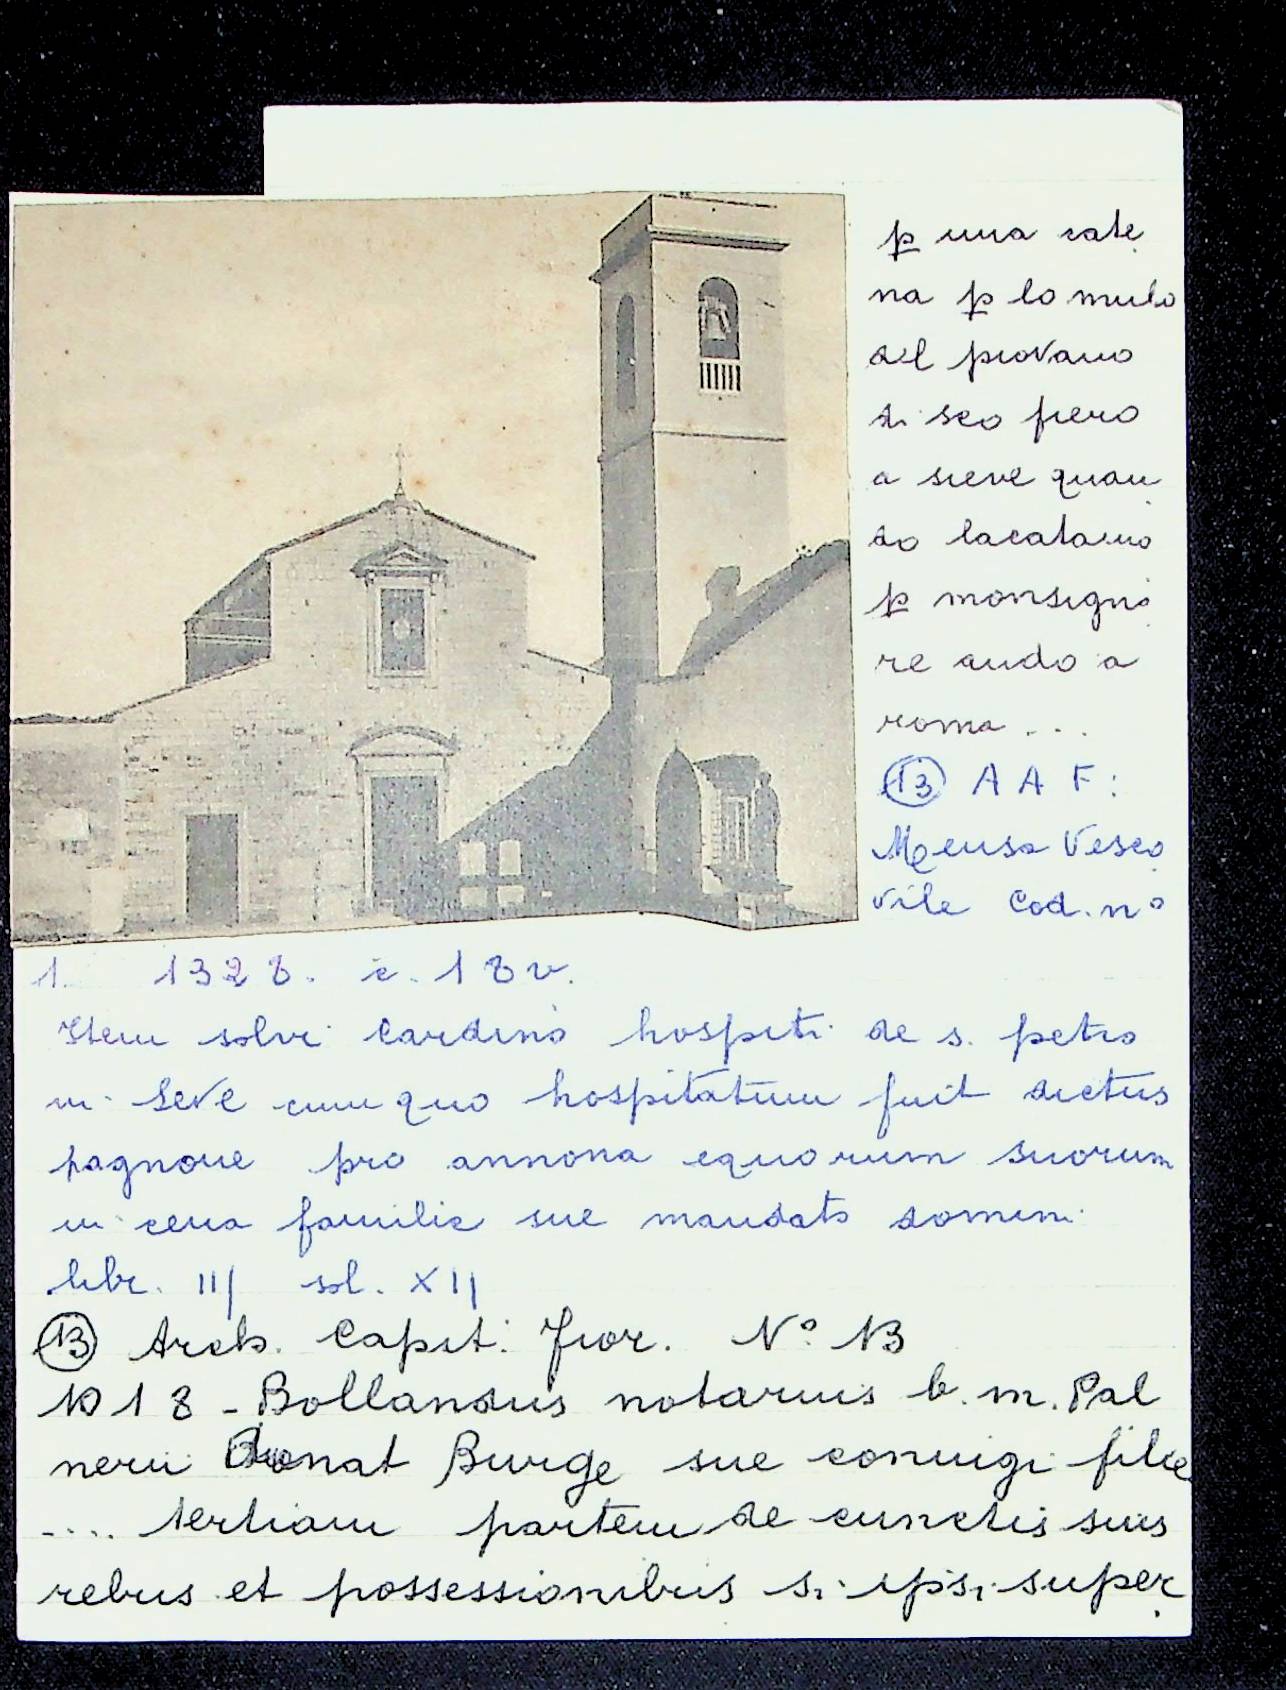 p una cate
na p lo mulo
del piovano
di sco piero
a sieve quan
do lacatamo
p monsigno
re ando a
roma ...
(13) A A F:
Mensa Vesco
vile Cod. n°
1. 1328. c. 18 v.
Item solvi Cardino hospiti de s. petro
in Seve cum quo hospitatum fuit dictus
pagnone pro annona equorum suorum
in cena familie sue mandato domini
libr. III sol. XII
(13) Arch. Capit. Fior. N° 13
1018 - Bollandus notarius b. m. Pal
nerii Donat Burge sue coniugi filie
.... tertiam partem de cunctis suis
rebus et possessionibus si ipsi super